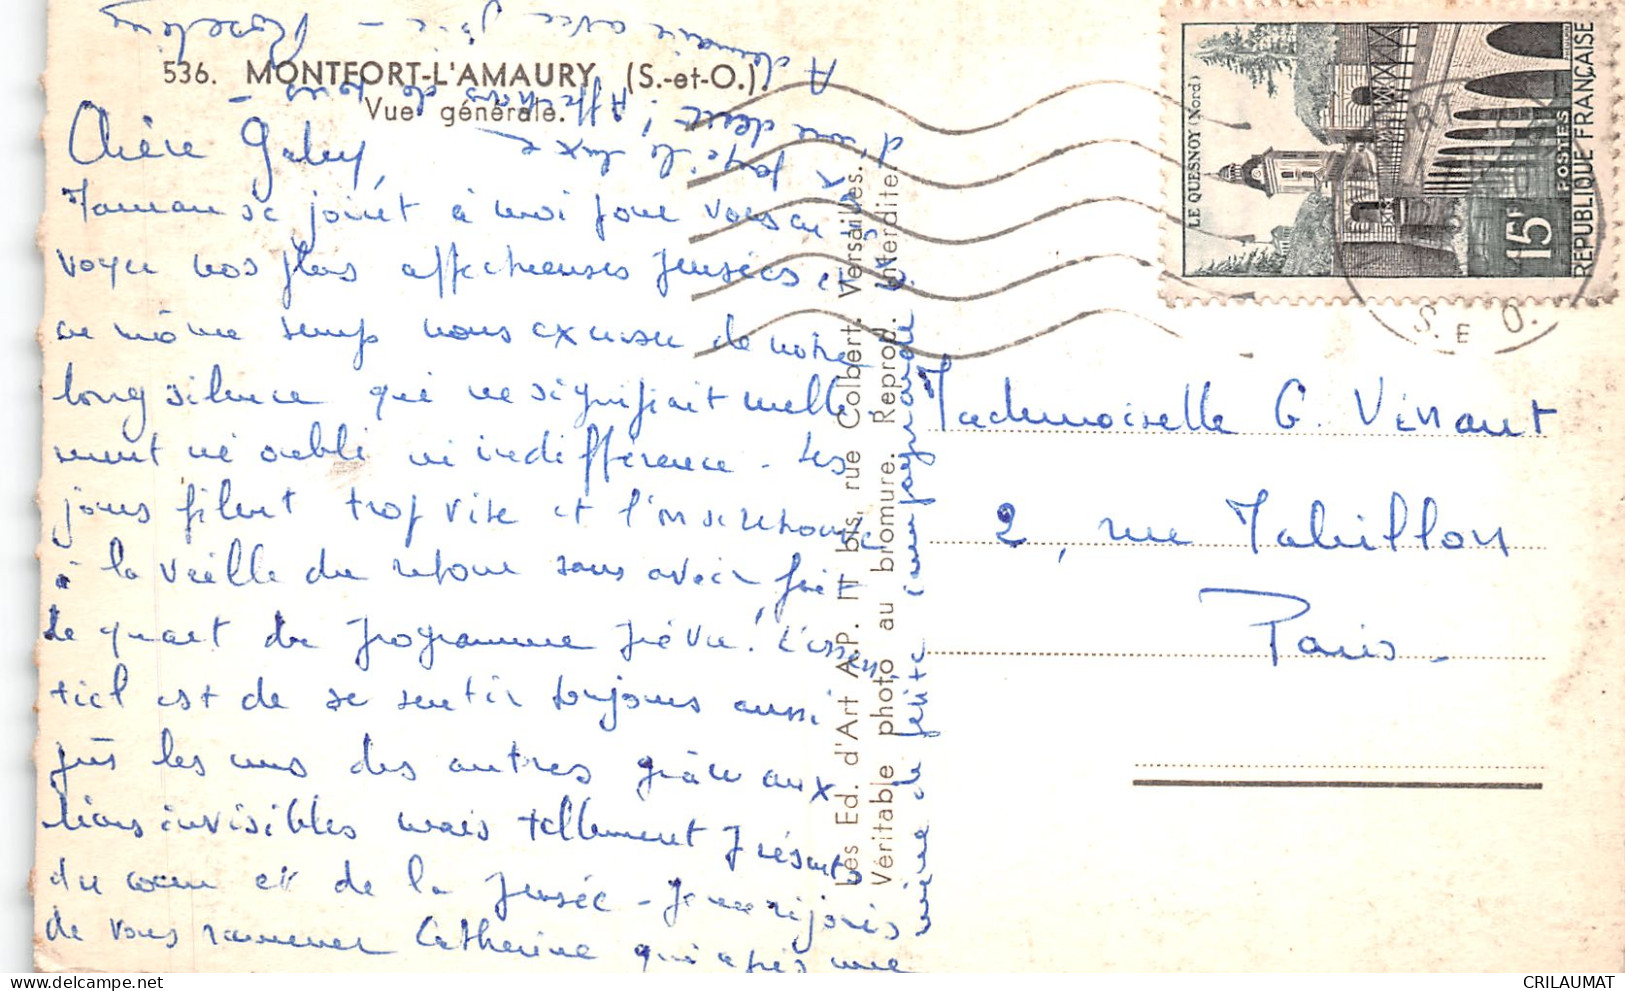 536. MONTFORT-L'AMAURY (S.-et-O.)
Vue générale.
Chère Gaby,
Maman se joint à moi pour vous en
voyer nos plus affectueuses pensées et
en même temps nous excuser de notre
long silence qui ne signifiait nulle
ment ni oubli ni indifférence. Les
jours filent trop vite et l'on se retrouve
à la veille du retour sans avoir fait
le quart du programme prévu! L'essen
tiel est de se sentir toujours aussi
près les uns des autres grâce aux
liens invisibles mais tellement présents
du coeur et de la pensée - Je me réjouis
de vous ramener Catherine qui après une
mine de petite campagnarde
A dimanche avec joie - Roseline
LE QUESNOY (Nord)
15F
POSTES
REPUBLIQUE FRANÇAISE
S. E O.
Les Ed. d'Art A.P. IT bis, rue Colbert. Versailles.
Véritable photo au bromure. Reprod. interdite.
Mademoiselle G. Venant
2, rue Mabillon
Paris -
CRILAUMAT